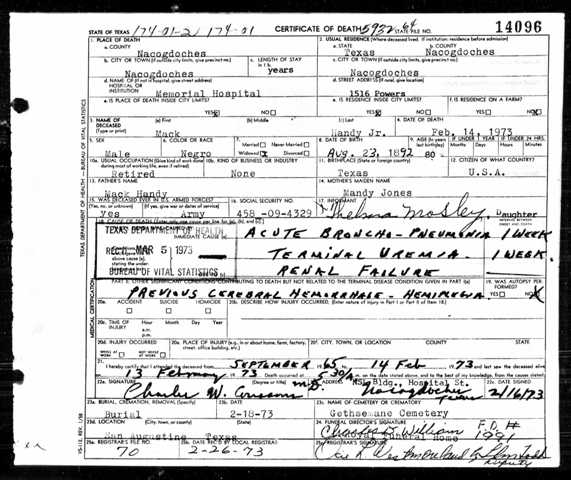 STATE OF TEXAS 174-01-2 / 174-01 CERTIFICATE OF DEATH STATE FILE NO. 14096
1. PLACE OF DEATH 2. USUAL RESIDENCE (Where deceased lived. If institution: residence before admission)
a. COUNTY Nacogdoches a. STATE Texas b. COUNTY Nacogdoches
b. CITY OR TOWN (If outside city limits, give precinct no.) Nacogdoches c. LENGTH OF STAY in 1 b. years c. CITY OR TOWN (If outside city limits, give precinct no.) Nacogdoches
d. NAME OF HOSPITAL OR INSTITUTION (If not in hospital, give street address) Memorial Hospital d. STREET ADDRESS 1516 Powers
e. IS PLACE OF DEATH INSIDE CITY LIMITS? YES NO e. IS RESIDENCE INSIDE CITY LIMITS? YES NO f. IS RESIDENCE ON A FARM? YES NO
3. NAME OF DECEASED (Type or print) (a) First Mack (b) Middle (c) Last Handy Jr. 4. DATE OF DEATH Feb. 14, 1973
5. SEX Male 6. COLOR OR RACE Negro 7. Married Never Married Widowed Divorced 8. DATE OF BIRTH Aug. 23, 1892 80
10a. USUAL OCCUPATION (Give kind of work done during most of working life, even if retired) Retired 10b. KIND OF BUSINESS OR INDUSTRY None 11. BIRTHPLACE (State or foreign country) Texas 12. CITIZEN OF WHAT COUNTRY? U.S.A.
13. FATHER'S NAME Mack Handy 14. MOTHER'S MAIDEN NAME Mandy Jones
15. WAS DECEASED EVER IN U.S. ARMED FORCES? yes Army 16. SOCIAL SECURITY NO. 458-09-4329 17. INFORMANT Thelma Mosley, Daughter
TEXAS DEPARTMENT OF HEALTH
REC'D MAR 5 1973
BUREAU OF VITAL STATISTICS
ACUTE BRONCHO-PNEUMONIA 1 WEEK
TERMINAL UREMIA 1 WEEK
RENAL FAILURE
PREVIOUS CEREBRAL HEMORRHAGE - HEMIPLEGIA 19. WAS AUTOPSY PERFORMED? YES NO
20a. ACCIDENT SUICIDE HOMICIDE 20b. DESCRIBE HOW INJURY OCCURRED. (Enter nature of injury in Part I or Part II of item 18.)
20c. TIME OF INJURY Hour a.m. p.m. Month Day Year
20d. INJURY OCCURRED 20e. PLACE OF INJURY (e.g., in or about home, farm, factory, street, office building, etc.) 20f. CITY, TOWN, OR LOCATION COUNTY STATE
21. I hereby certify that I attended the deceased from SEPTEMBER 65 14 Feb 73
13 February 73
22a. SIGNATURE (Degree or title) M.D. 22b. ADDRESS Bldg., Hospital St. Nacogdoches 22c. DATE SIGNED 2/16/73
23a. BURIAL, CREMATION, REMOVAL (Specify) Burial 23b. DATE 2-18-73 23c. NAME OF CEMETERY OR CREMATORY Gethsemane Cemetery
23d. LOCATION (City, town, or county) (State) San Augustine Texas 24. FUNERAL DIRECTOR'S SIGNATURE Funeral Home
25a. REGISTRAR'S FILE NO. 70 25b. DATE REC'D BY LOCAL REGISTRAR 2-26-73 25c. REGISTRAR'S SIGNATURE
TEXAS DEPARTMENT OF HEALTH - BUREAU OF VITAL STATISTICS
MEDICAL CERTIFICATION